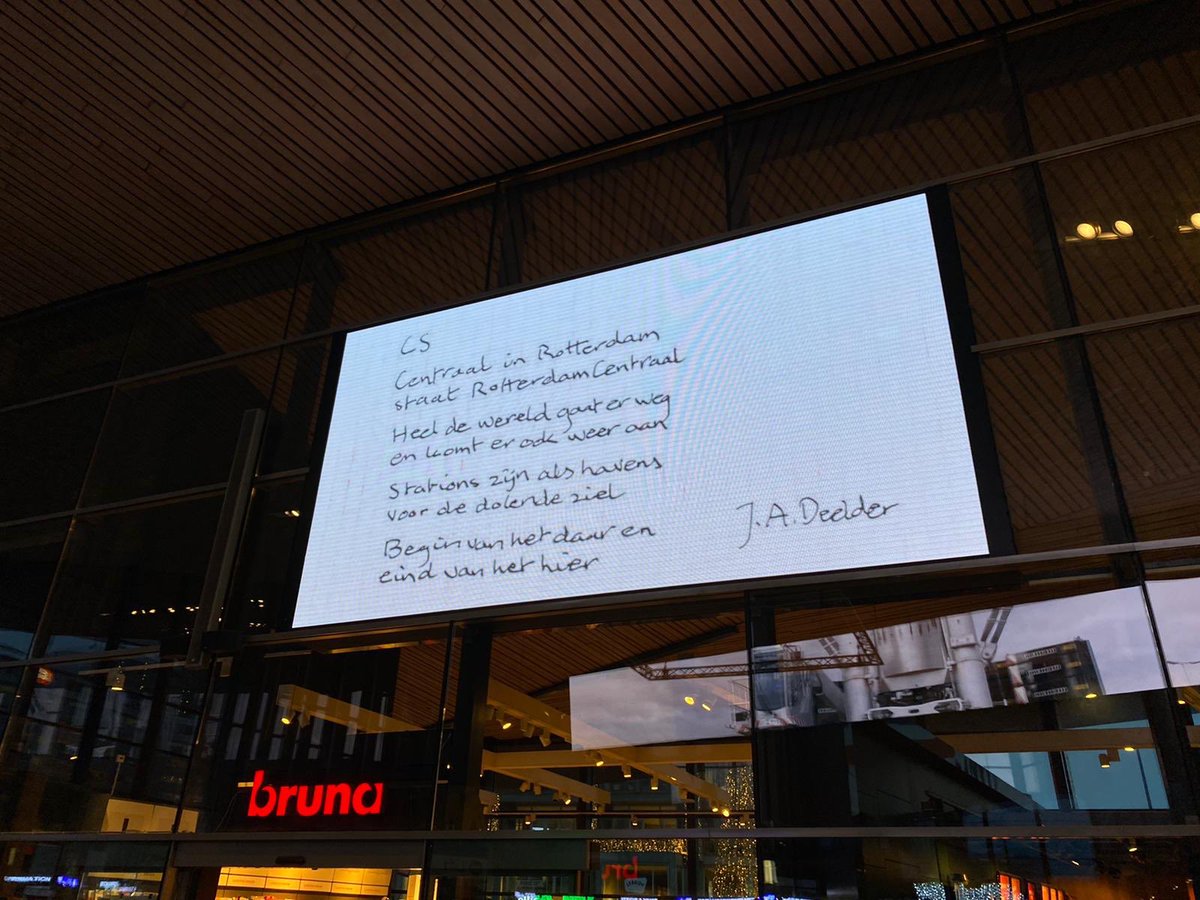 CS
Centraal in Rotterdam
staat RotterdamCentraal
Heel de wereld gaat er weg
en komt er ook weer aan
Stations zijn als havens
voor de dolende ziel
Begin van het daar en
eind van het hier
J.A. Deelder
bruna